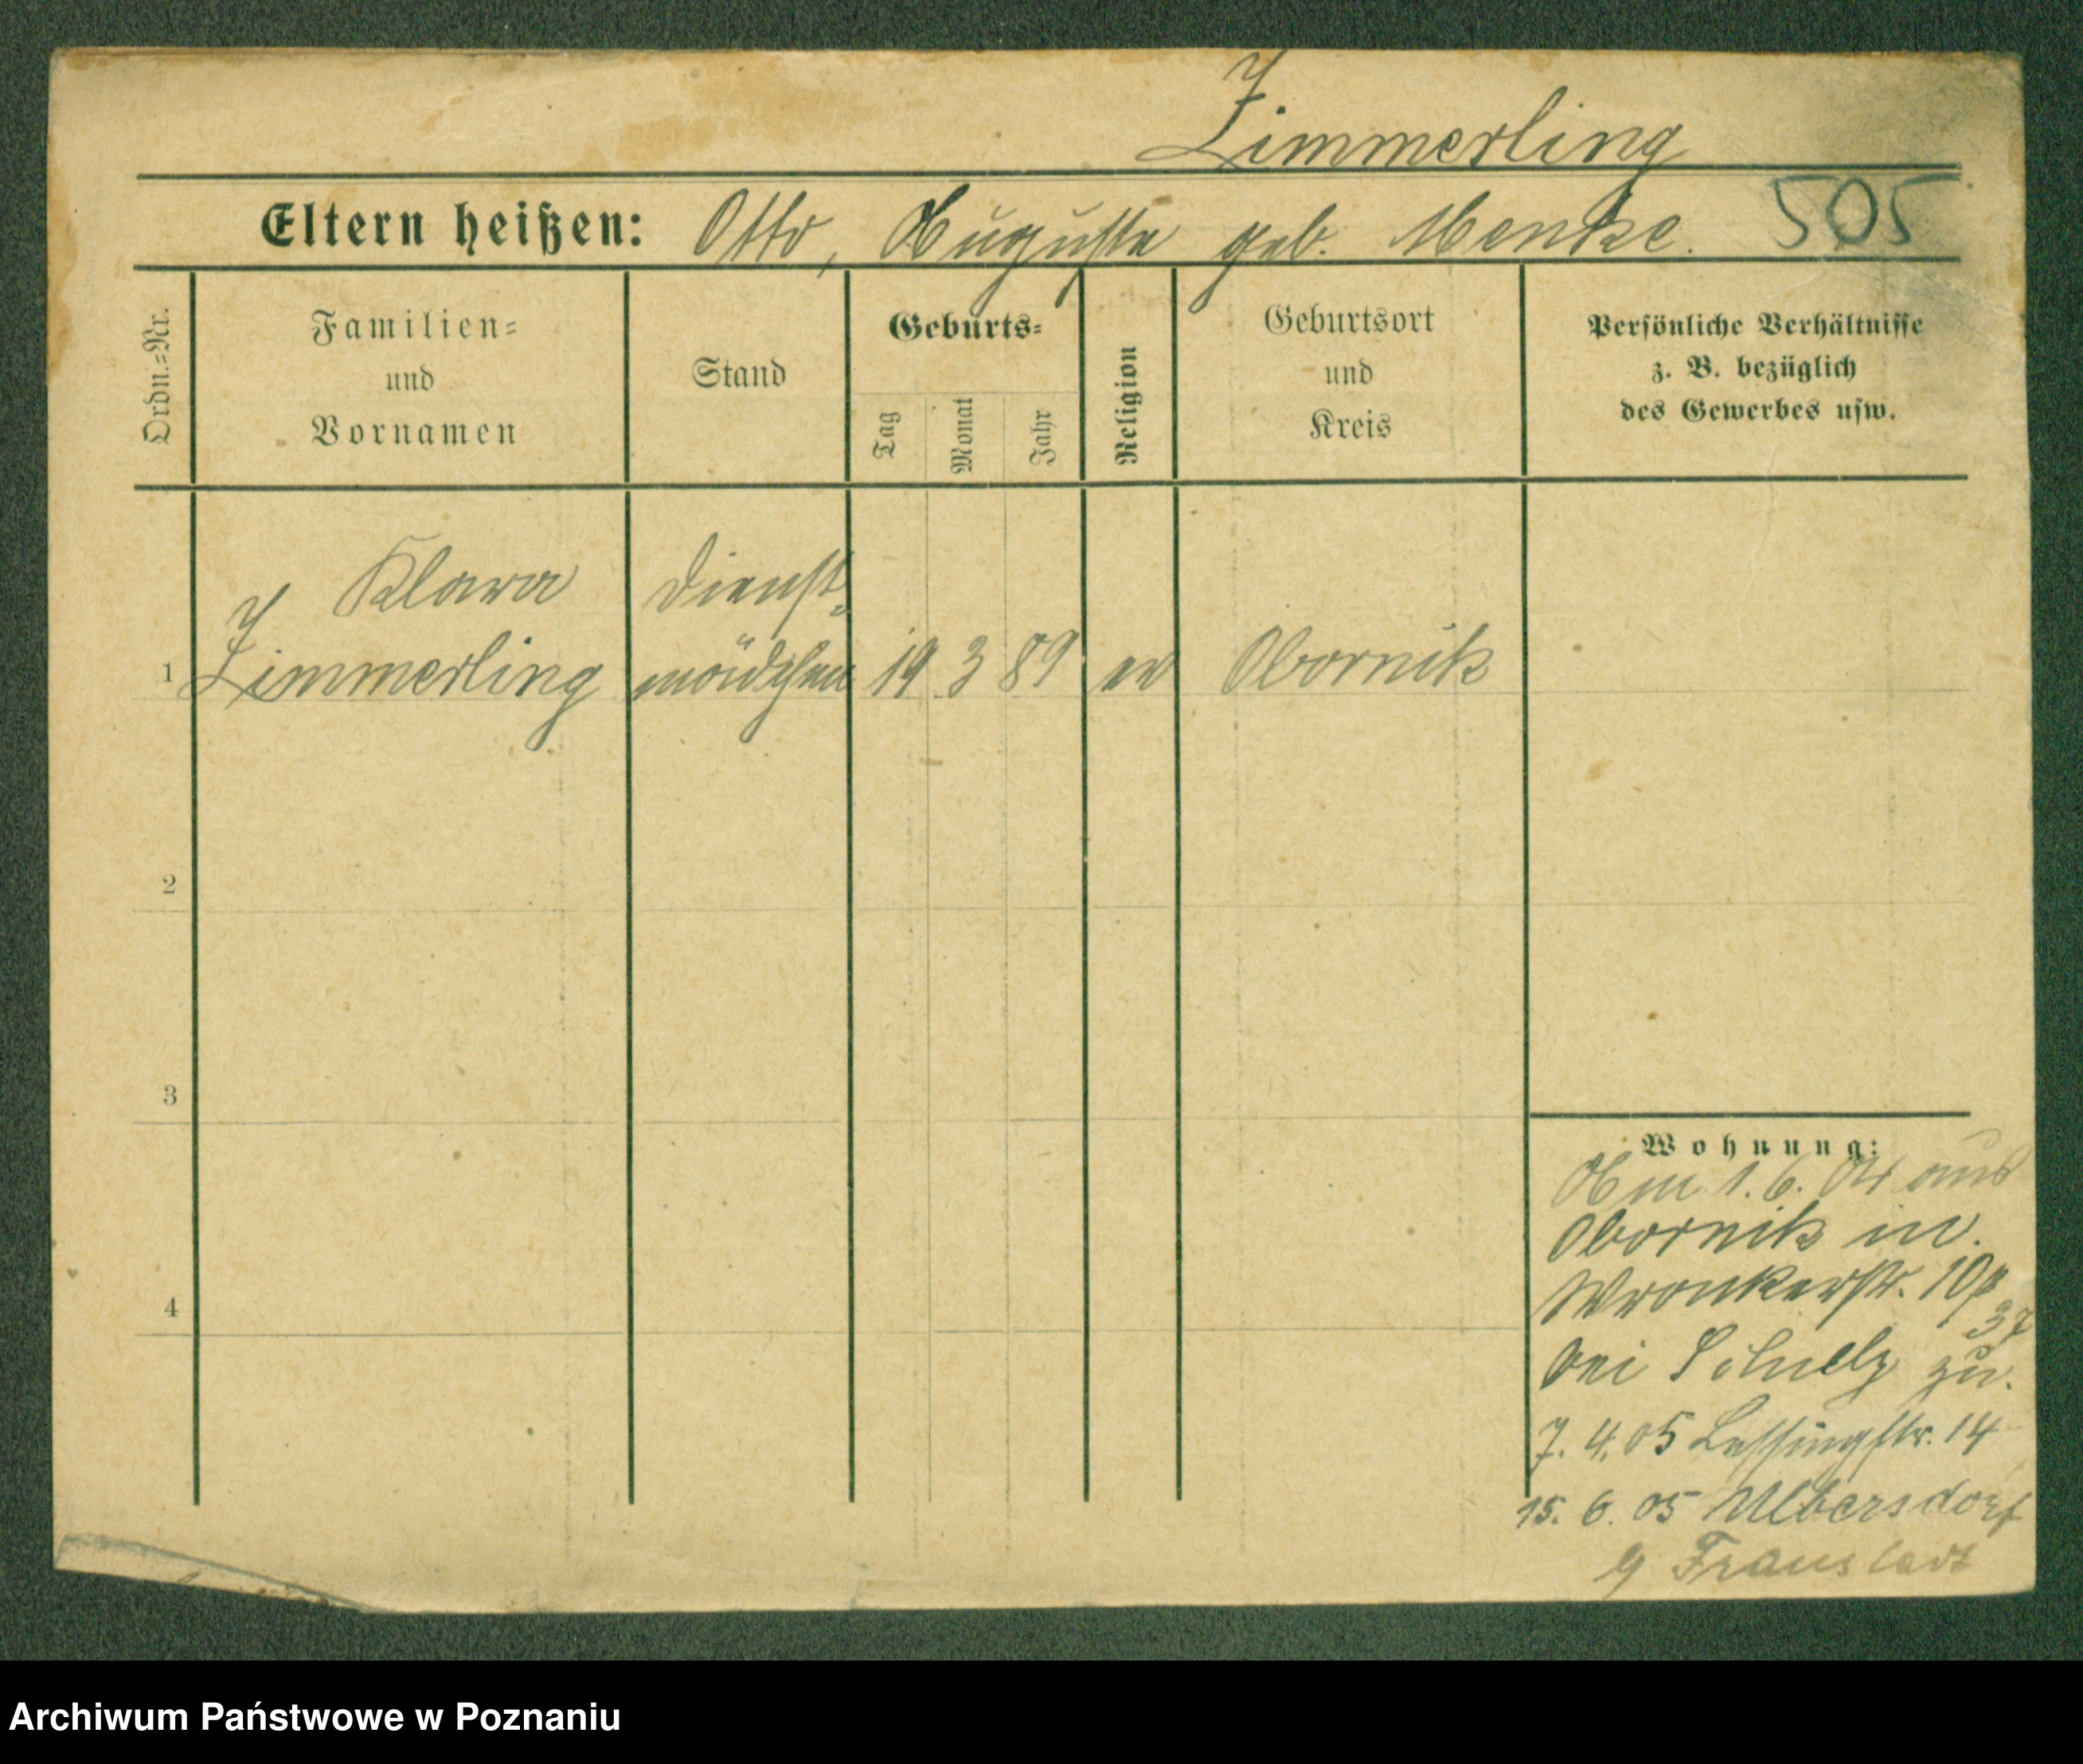 Zimmerling
Eltern heißen: Otto, Auguste geb. Menke. 505
Ordn.=Nr.
Familien=
und
Vornamen
Stand
Geburts=
Tag
Monat
Jahr
Religion
Geburtsort
und
Kreis
Persönliche Verhältnisse
z. B. bezüglich
des Gewerbes usw.
Klara Dienst=
1 Zimmerling mädchen 19 3 89 ev Obornik
2
3
4
Wohnung:
Am 1. 6. 04 aus
Obornik in
Wronkerstr. 10
bei zu.
7. 4. 05 Lessingstr. 14
15. 6. 05 Ulbersdorf
Fraustadt
Archiwum Państwowe w Poznaniu